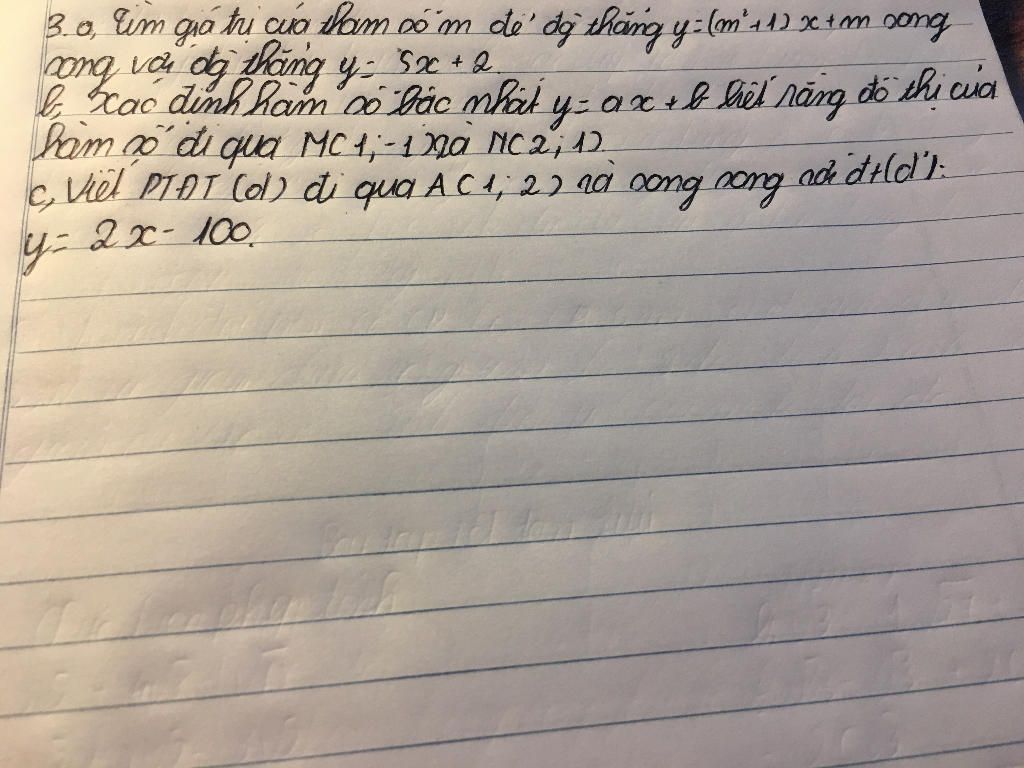 3. a, Tìm giá trị của tham số m để đg thẳng y=(m²+1)x+m song
song với đg thẳng y= 5x + 2.
b, Xác định hàm số bậc nhất y= ax + b biết rằng đồ thị của
hàm số đi qua M(1;-1) và N(2;1).
c, Viết PTĐT (d) đi qua A(1;2) và song song với đt(d'):
y= 2x - 100.